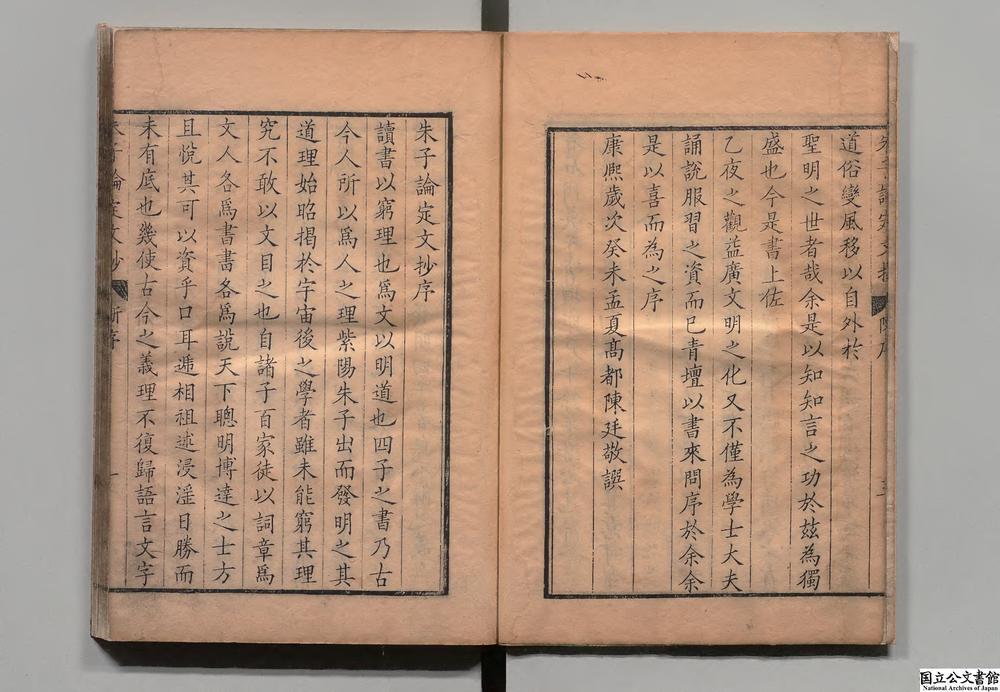 道俗變風移以自外於
聖明之世者哉余是以知知言之功於茲為獨
盛也今是書上佐
乙夜之觀益廣文明之化又不僅為學士大夫
誦說服習之資而已青壇以書來問序於余余
是以喜而為之序
康熙歲次癸未孟夏髙都陳廷敬譔
朱子論定文抄序
讀書以窮理也爲文以明道也四子之書乃古
今人所以爲人之理紫陽朱子出而發明之其
道理始昭掲於宇宙後之學者雖未能窮其理
究不敢以文目之也自諸子百家徒以詞章爲
文人各爲書書各爲說天下聰明博達之士方
且悅其可以資乎口耳遞相祖述浸淫日勝而
未有底也幾使古今之義理不復歸語言文字
朱子論定文抄
一
国立公文書館
National Archives of Japan